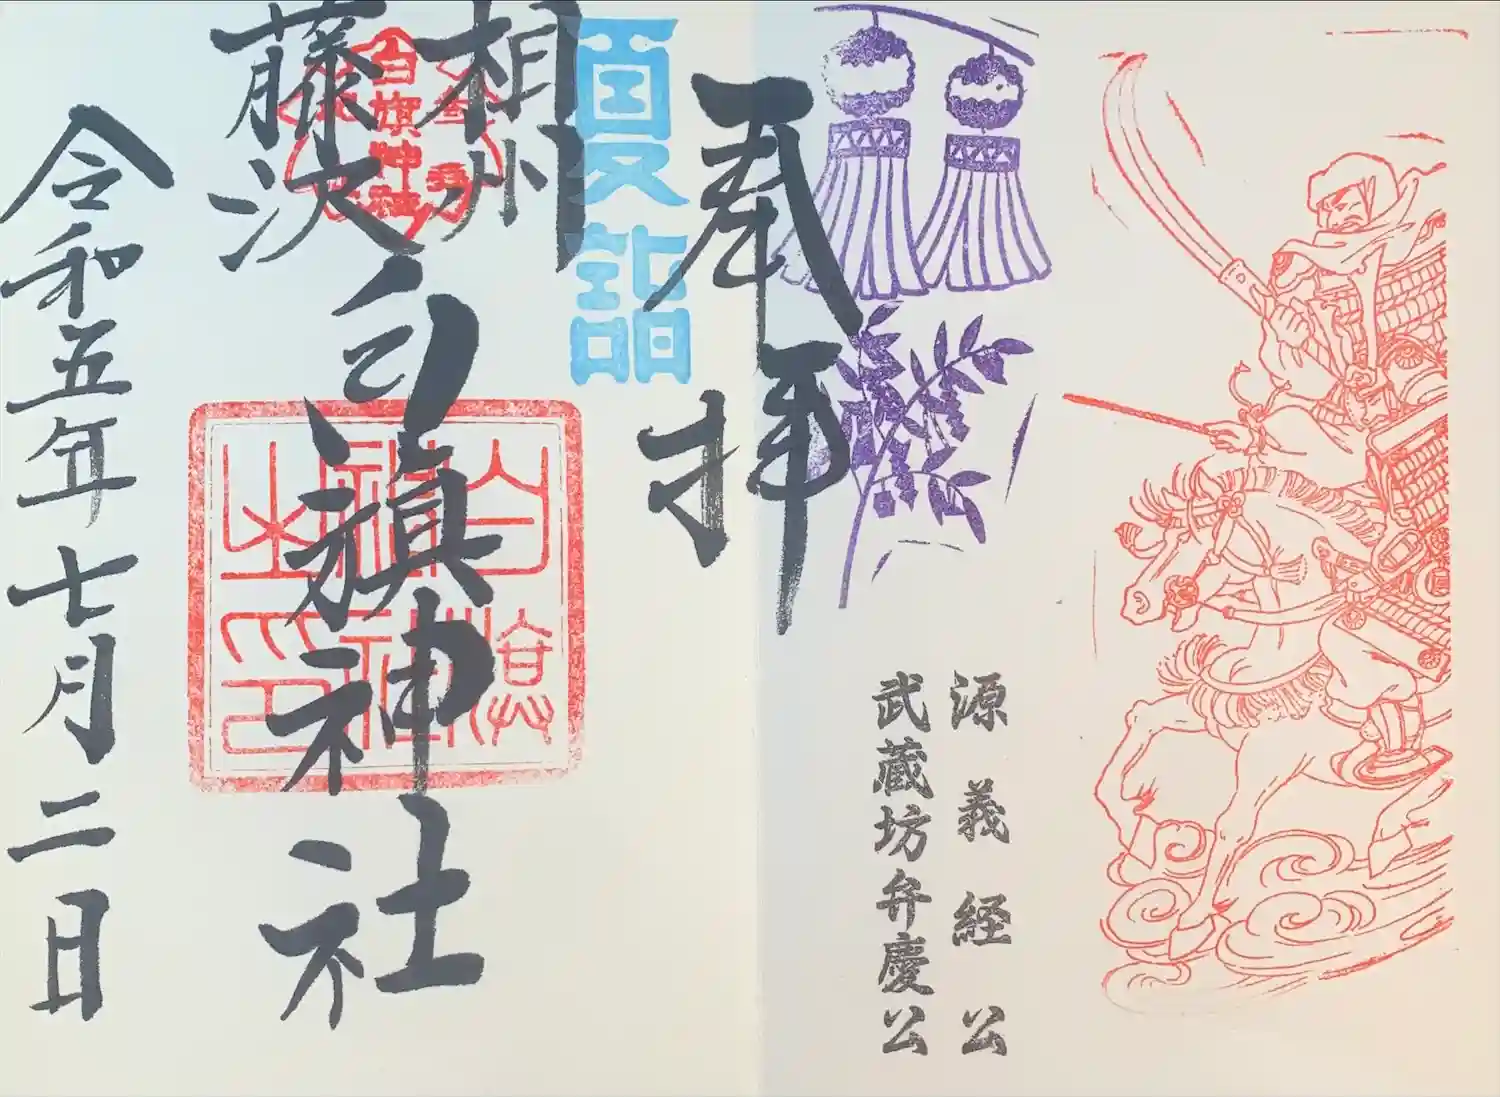 源義経公
武蔵坊弁慶公
奉拝
夏詣
相州
藤沢
白旗神社
白旗神社
白旗
神社
之印
令和五年七月二日